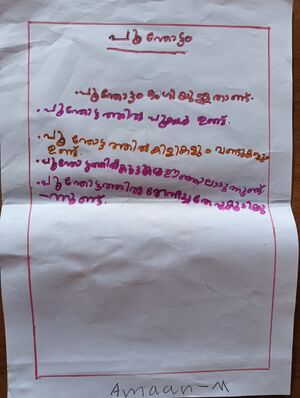 പൂന്തോട്ടം
.പൂന്തോട്ടം ഭംഗിയുള്ളതാണ്.
.പൂന്തോട്ടത്തിൽ പൂക്കൾ ഉണ്ട്.
.പൂന്തോട്ടത്തിൽ കിളികളും വണ്ടുകളും
ഉണ്ട്.
.പൂന്തോട്ടത്തിൽ ഊഞ്ഞാലാടുന്നുണ്ട്
.പൂന്തോട്ടത്തിൽ തേനീച്ച തേൻ കുടിക്കു
ന്നുണ്ട്.
Amaan-M